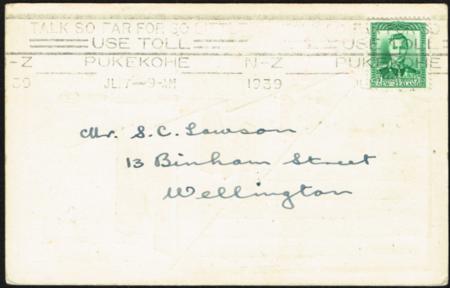 TALK SO FAR FOR SO
USE TOLL USE TOLL
N-Z PUKEKOHE N-Z PUKEKOHE
39 JL.7-9-AM 1939
NEW ZEALAND
Mr. S. C. Lawson
13 Binham Street
Wellington